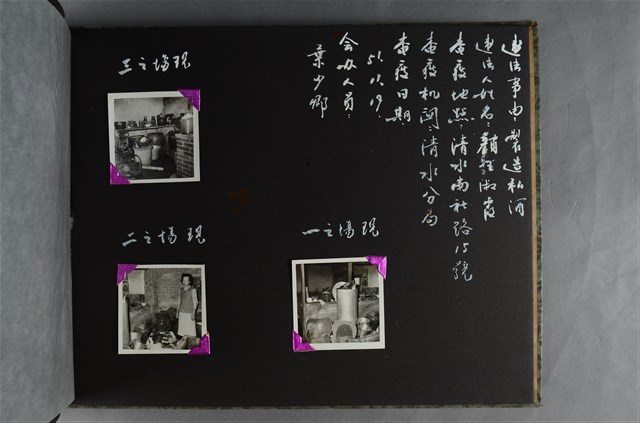 違法事由:製造私酒
違法人姓名:淑霞
查獲地點:清水南社路15號
查獲机関:清水分局
查獲日期
51.11.19.
会办人員:
葉少鄉
現場之一
現場之二
現場之三